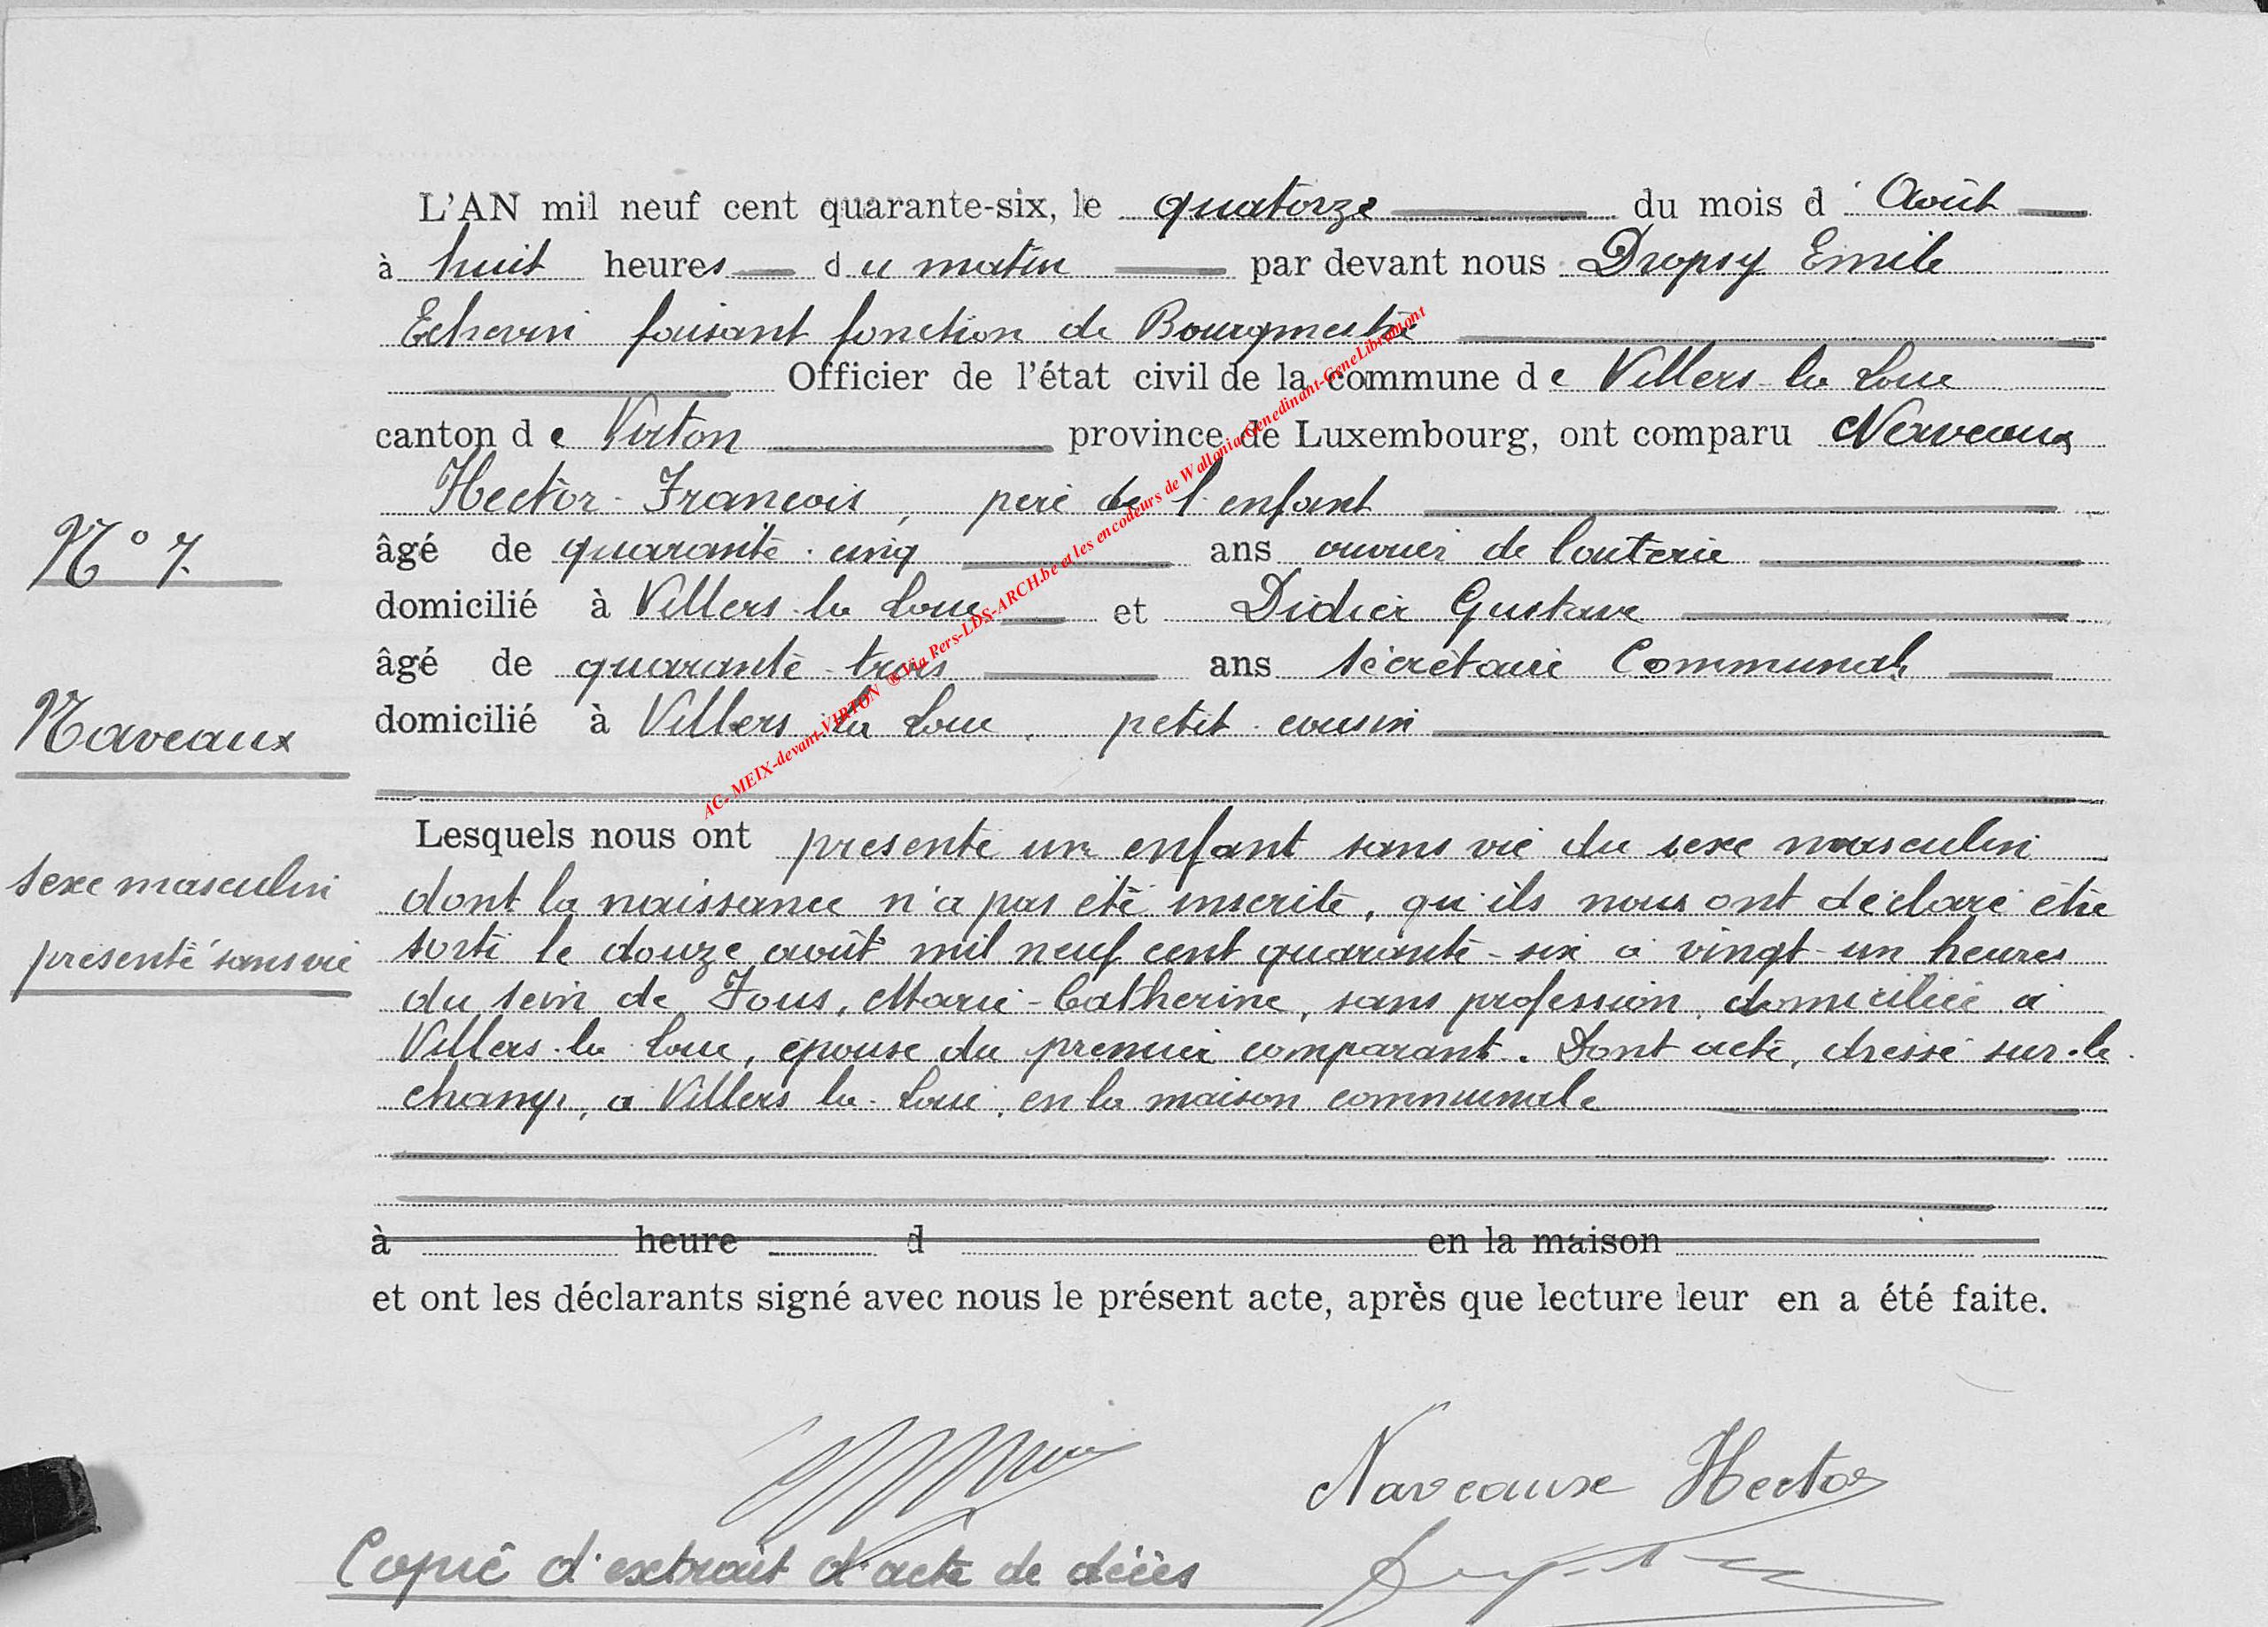 L'AN mil neuf cent quarante-six, le quatorze du mois d' Août
à huit heures du matin par devant nous Dropsy Emile
Echevin faisant fonction de Bourgmestre
Officier de l'état civil de la commune de Villers-la-Loue
canton de Virton province de Luxembourg, ont comparu Naveaux
Hector-François, père de l'enfant
N° 7.
âgé de quarante-cinq ans ouvrier de
domicilié à Villers-la-Loue et Didier Gustave
âgé de quarante-trois ans secrétaire Communal,
Naveaux
domicilié à Villers-la-Loue, petit-cousin
AC- MEIX-devant-VIRTON @ Via Pers-LDS-ARCH.be et les encodeurs de Wallonia-Genedinant-GeneLibramont
Lesquels nous ont présenté un enfant sans vie du sexe masculin
sexe masculin
dont la naissance n'a pas été inscrite, qu'ils nous ont déclaré être
présenté sans vie
sorti le douze août mil neuf cent quarante-six à vingt-un heures
du sein de Fous, Marie-Catherine, sans profession, domiciliée à
Villers-la-Loue, épouse du premier comparant. Dont acte, dressé sur-le
champ, à Villers-la-Loue, en la maison communale
à heure d en la maison
et ont les déclarants signé avec nous le présent acte, après que lecture leur en a été faite.
Naveaux Hector
Copie d'extrait d'acte de décès